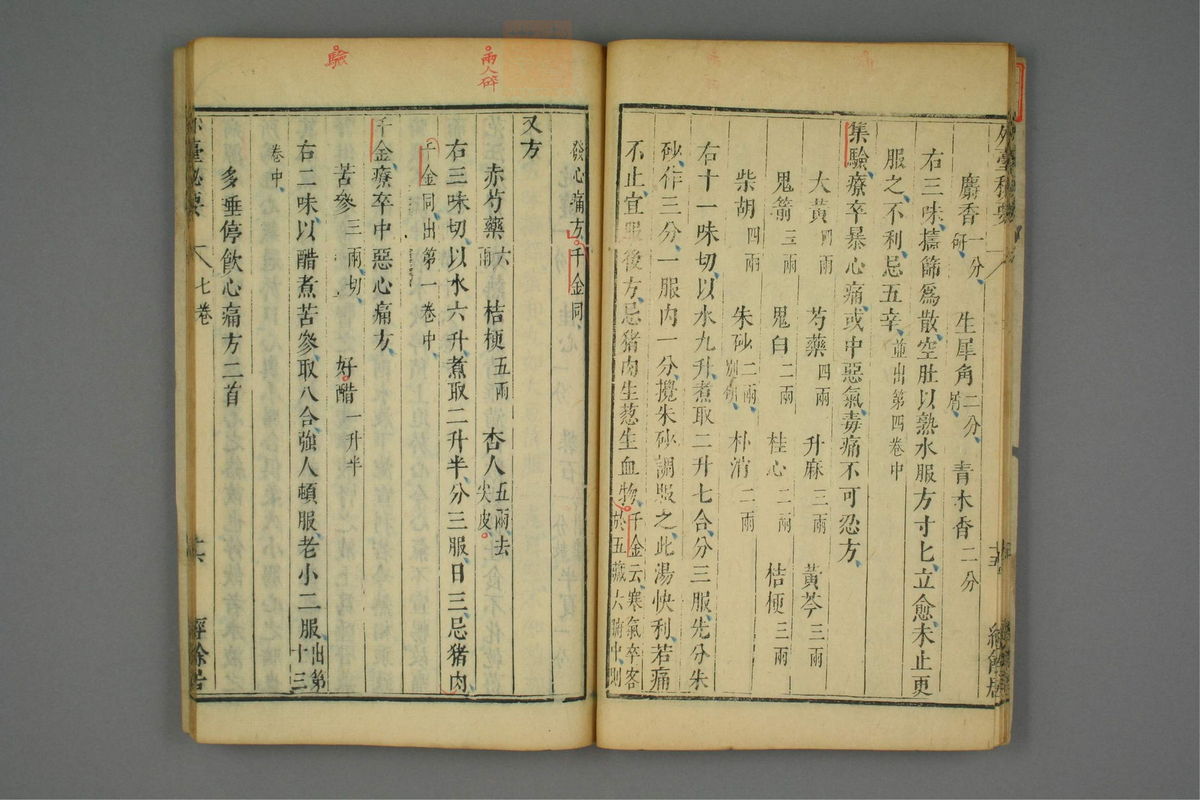 外臺秘要
麝香一分研 生犀角二分屑 青木香二分
右三味擣篩爲散空肚以熟水服方寸匕立愈未止更
服之不利忌五辛並出第四卷中
集驗療卒暴心痛或中惡氣毒痛不可忍方
大黃四兩 芍藥四兩 升麻三兩 黃芩三兩
鬼箭三兩 鬼臼二兩 桂心二兩 桔梗三兩
柴胡四兩 朱砂二兩別研 朴消二兩
右十一味切以水九升煮取二升七合分三服先分朱
砂作三分一服内一分攪朱砂調服之此湯快利若痛
不止宜服後方忌猪肉生葱生血物千金云寒氣卒客於五藏六腑中則
發心痛方千金同
兩人碎
又方
赤芍藥六兩 桔梗五兩 杏人五兩去尖皮
右三味切以水六升煮取二升半分三服日三忌猪肉
千金同出第一卷中
千金療卒中惡心痛方
驗
苦參三兩切 好醋一升半
右二味以醋煮苦參取八合強人頓服老小二服出第十三
卷中
多唾停飲心痛方二首
外臺秘要 七卷 十六 經餘居